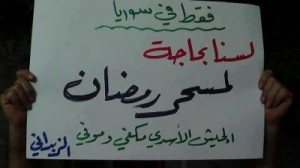 فقط في سوريا
لسنا بحاجة
لمسحر رمضان
الجيش الأسدي مكفي وموفي
الزبداني